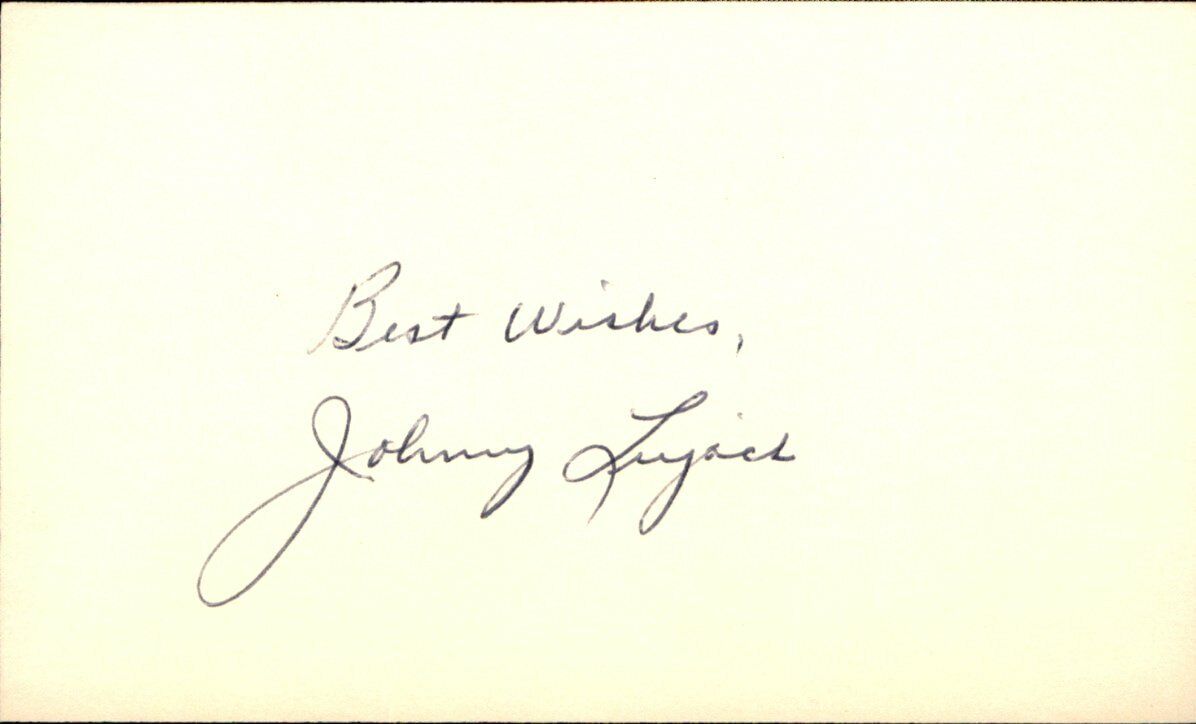 Best Wishes,
Johnny Lujack